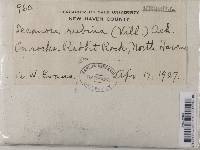 960
HERBARIUM OF YALE UNIVERSITY
NEW HAVEN COUNTY
Lecanora rubina (Vill.) Ach.
On rocks, Rabbit Rock, North Haven
A. W. Evans. Apr. 17, 1927.